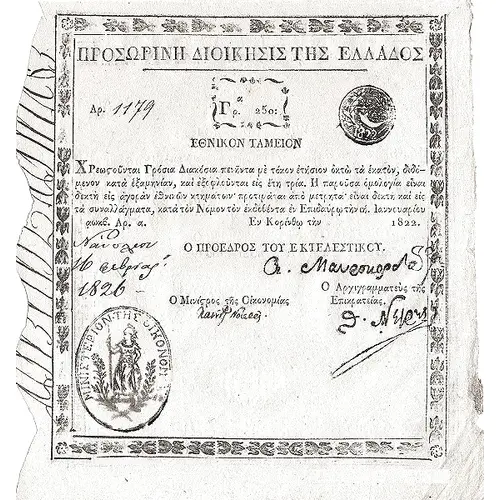 ΠΡΟΣΩΡΙΝΗ ΔΙΟΙΚΗΣΙΣ ΤΗΣ ΕΛΛΑΔΟΣ
Αρ. 1179
Γρ.α 250:
1822
ΕΘΝΙΚΟΝ ΤΑΜΕΙΟΝ
Χρεωςοῦνται Γρόσια Διακόσια πενῆντα μὲ τόκον ἐτήσιον ὀκτὼ τὰ ἑκατὸν, διδό-
μενον κατὰ ἑξαμηνίαν, καὶ ἐξοφλοῦνται εἰς ἔτη τρία. Ἡ παροῦσα ὁμολογία εἶναι
δεκτὴ εἰς ἀγορὰν ἐθνικῶν κτημάτων· προτιμᾶται ἀπὸ μετρητά· εἶναι δεκτὴ καὶ εἰς
τὰ συναλλάγματα, κατὰ τὸν Νόμον τὸν ἐκδοθέντα ἐν Ἐπιδαύρῳ τῇ Ἰαννουαρίου
αωκβ. Αρ. α. Εν Κορίνθῳ τῇ 1822.
Ναύπλιον
16 φεβρουαρ
1826
Ο ΠΡΟΕΔΡΟΣ ΤΟΥ ΕΚΤΕΛΕΣΤΙΚΟΥ.
Α. Μαυροκορδα
Ο Μινίςρος τῆς Οἰκονομίας
Ο Αρχιγραμματεὺς τῆς
Επικρατείας.
Θ. Νέγρης
ΜΙΝΙΣΤΕΡΙΟΝ ΤΗΣ ΟΙΚΟΝΟΜ